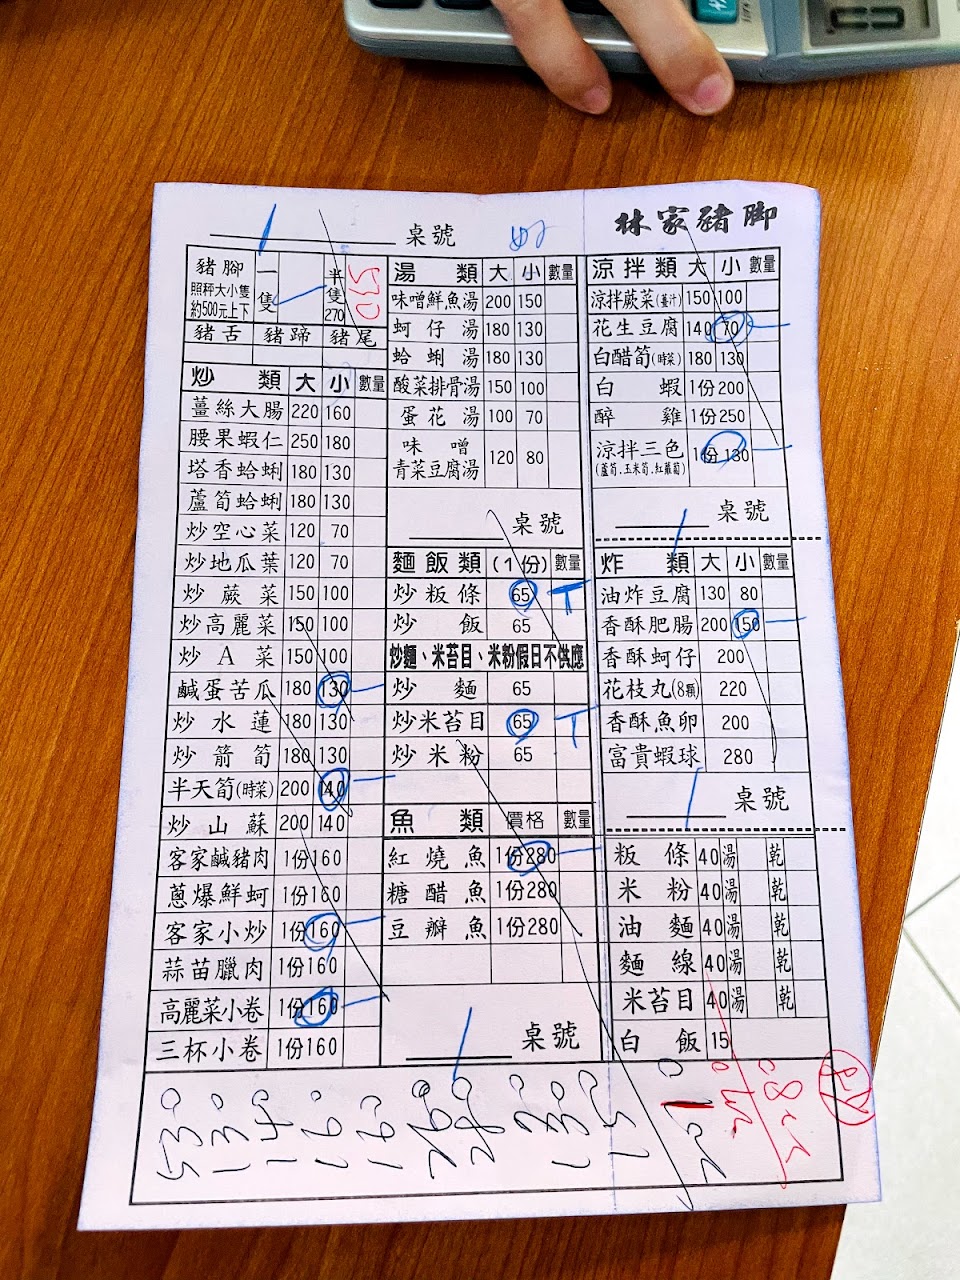 林家豬脚
桌號
豬腳 一隻 半隻 270 530
照秤大小隻
約500元上下
豬舌 豬蹄 豬尾
炒類 大 小 數量
薑絲大腸 220 160
腰果蝦仁 250 180
塔香蛤蜊 180 130
蘆筍蛤蜊 180 130
炒空心菜 120 70
炒地瓜葉 120 70
炒蕨菜 150 100
炒高麗菜 150 100
炒A菜 150 100
鹹蛋苦瓜 180 130
炒水蓮 180 130
炒箭筍 180 130
半天筍(時菜) 200 140
炒山蘇 200 140
客家鹹豬肉 1份160
蔥爆鮮蚵 1份160
客家小炒 1份160
蒜苗臘肉 1份160
高麗菜小卷 1份160
三杯小卷 1份160
湯類 大 小 數量
味噌鮮魚湯 200 150
蚵仔湯 180 130
蛤蜊湯 180 130
酸菜排骨湯 150 100
蛋花湯 100 70
味噌
青菜豆腐湯 120 80
桌號
麵飯類(1份) 數量
炒粄條 65 T
炒飯 65
炒麵、米苔目、米粉假日不供應
炒麵 65
炒米苔目 65 T
炒米粉 65
魚類 價格 數量
紅燒魚 1份280
糖醋魚 1份280
豆瓣魚 1份280
桌號
涼拌類 大 小 數量
涼拌蕨菜(薑汁) 150 100
花生豆腐 140 70
白醋筍(時菜) 180 130
白蝦 1份200
醉雞 1份250
涼拌三色 1份130
(蘆筍,玉米筍,紅蘿蔔)
桌號
炸類 大 小 數量
油炸豆腐 130 80
香酥肥腸 200 150
香酥蚵仔 200
花枝丸(8顆) 220
香酥魚卵 200
富貴蝦球 280
桌號
粄條 40 湯 乾
米粉 40 湯 乾
油麵 40 湯 乾
麵線 40 湯 乾
米苔目 40 湯 乾
白飯 15
530
130
140
160
160
260
280